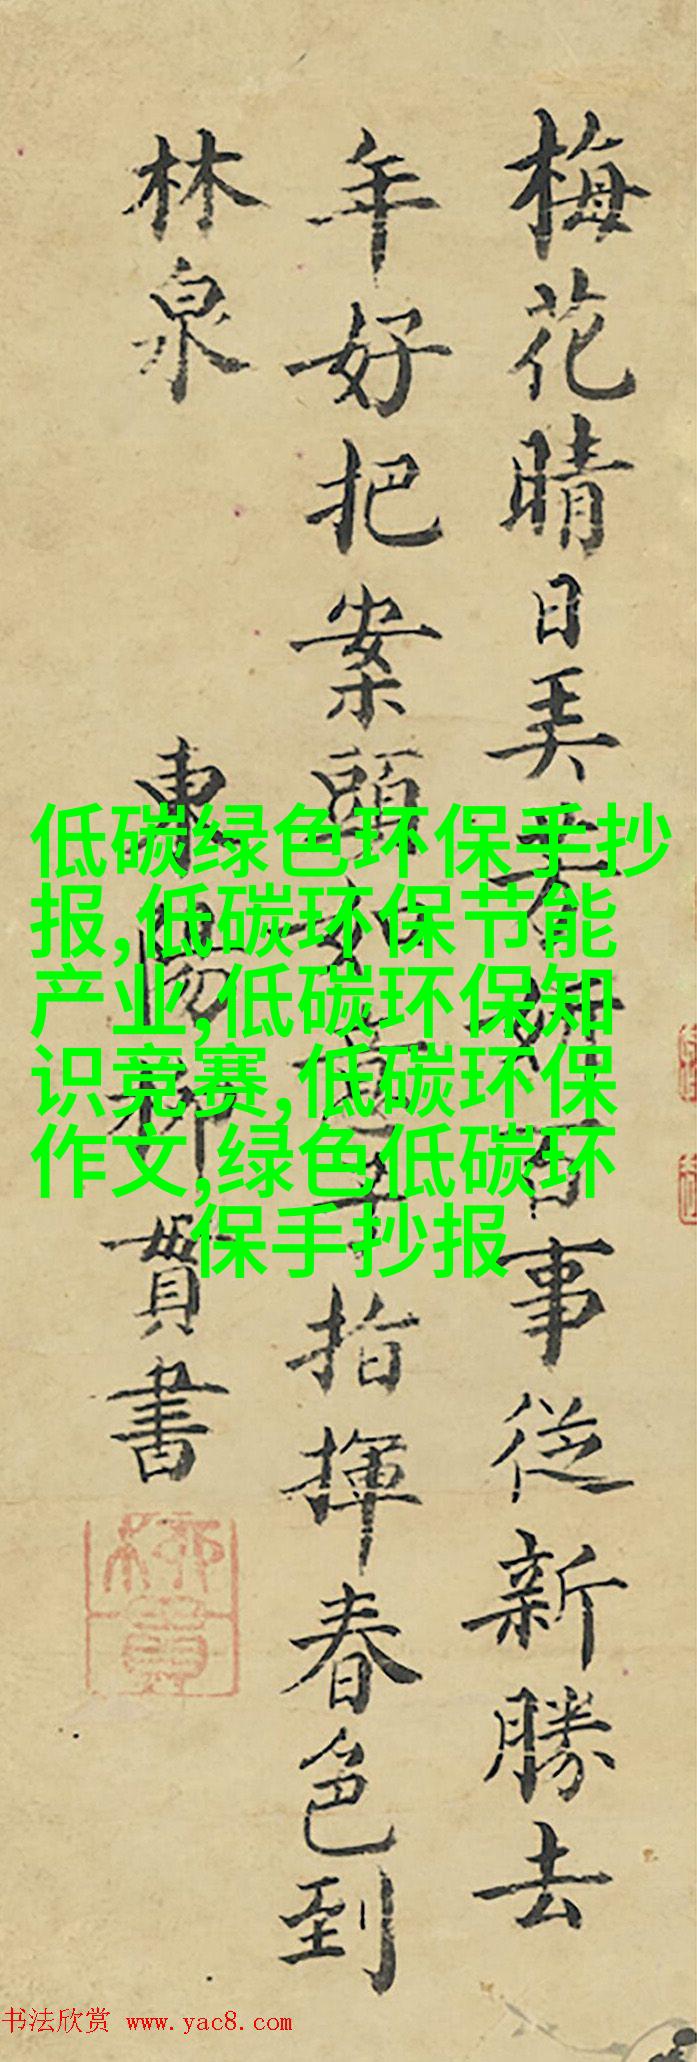 梅花晴日美妍百事従新勝去
年好把案頭如意手指揮春色到
林泉
東陽柳貫書
柳貫
低碳绿色环保手抄
报,低碳环保节能
产业,低碳环保知
识竞赛,低碳环保
作文,绿色低碳环
保手抄报
书法欣赏 www.yac8.com